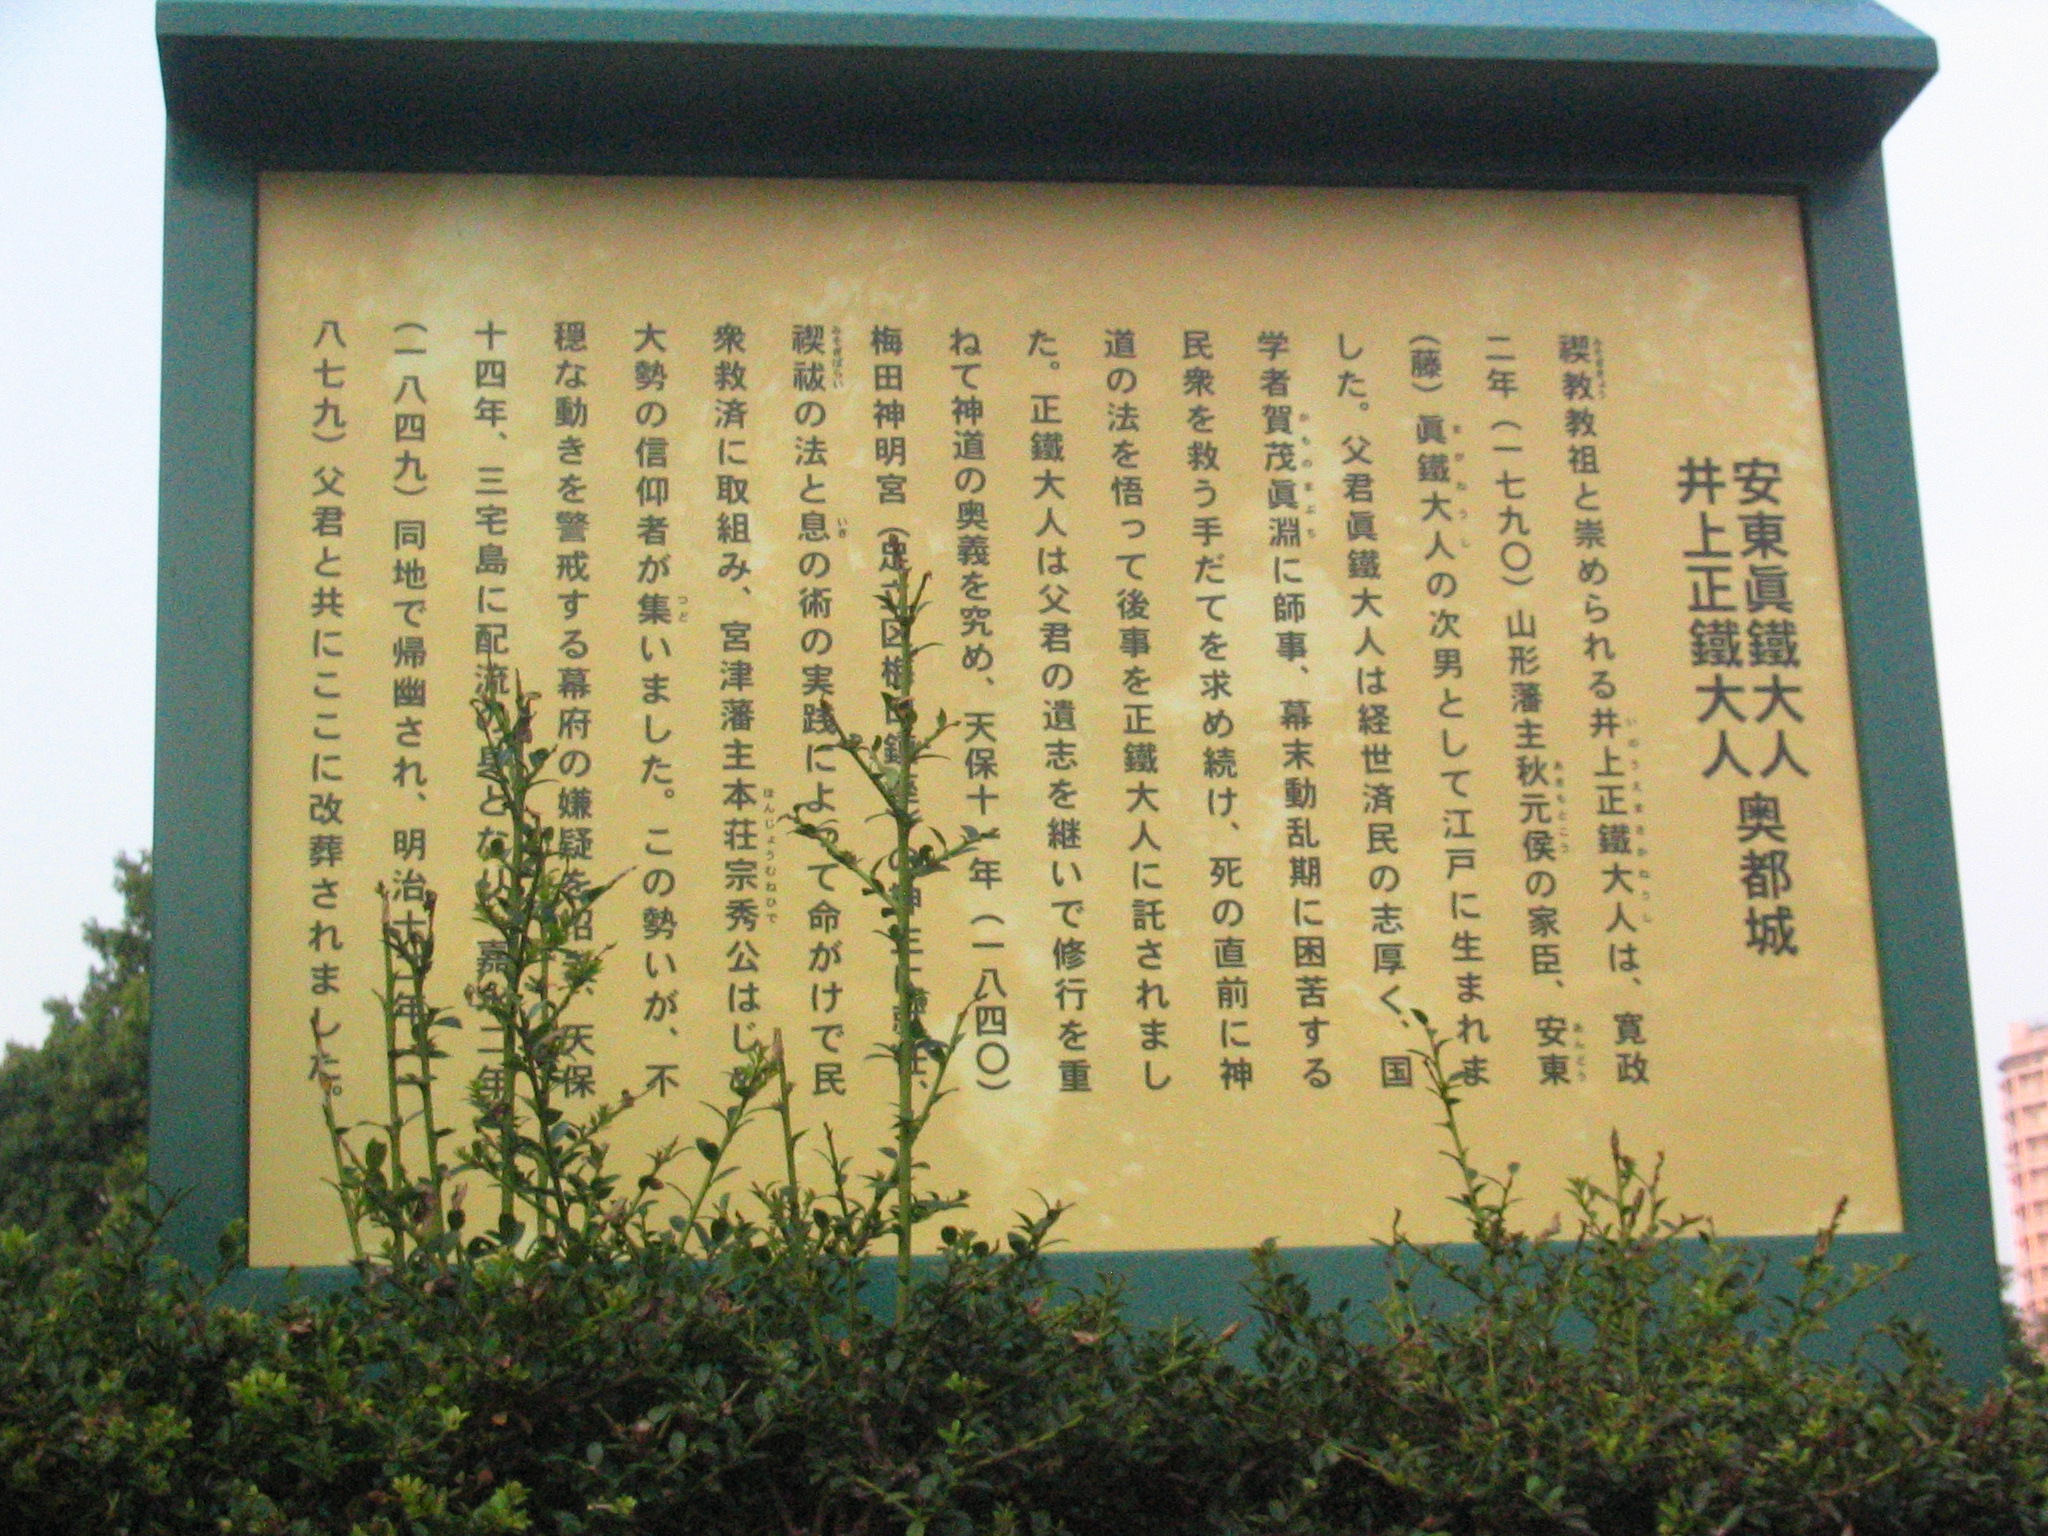 安東眞鐵大人 奥都城
井上正鐵大人
禊教教祖と崇められる井上正鐵大人は、寛政
二年（一七九〇）山形藩主秋元侯の家臣、安東
（藤）眞鐵大人の次男として江戸に生まれま
した。父君眞鐵大人は経世済民の志厚く、国
学者賀茂眞淵に師事、幕末動乱期に困苦する
民衆を救う手だてを求め続け、死の直前に神
道の法を悟って後事を正鐵大人に託されまし
た。正鐵大人は父君の遺志を継いで修行を重
ねて神道の奥義を究め、天保十一年（一八四〇）
梅田神明宮（足立区梅田鎮座）の神主に就任、
禊祓の法と息の術の実践によって命がけで民
衆救済に取組み、宮津藩主本荘宗秀公はじめ
大勢の信仰者が集いました。この勢いが、不
穏な動きを警戒する幕府の嫌疑を招き、天保
十四年、三宅島に配流の身となり、嘉永二年
（一八四九）同地で帰幽され、明治十二年（一
八七九）父君と共にここに改葬されました。